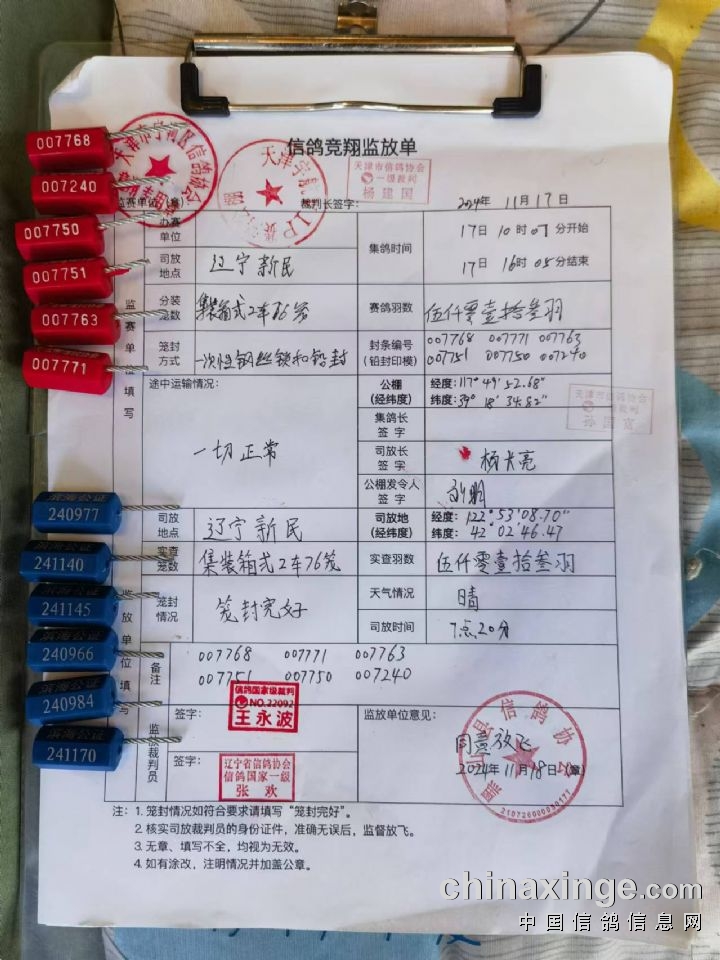 信鸽竞翔监放单
007768
007240
007750
007751
007763
007771
天津市信鸽协会
一级裁判
杨建国
裁判长签字：
2024年 11月17日
办赛单位
集鸽时间
17日 10时07分开始
17日 16时05分结束
司放地点
辽宁新民
分装笼数
集装箱式2车76笼
赛鸽羽数
伍仟零壹拾叁羽
笼封方式
一次性钢丝锁和铅封
封条编号（铅封印模）
007768 007771 007763
007751 007750 007240
监赛单位填写
途中运输情况：
一切正常
公棚（经纬度）
经度：117°49′52.68″
纬度：39°18′34.82″
集鸽长签字
天津市信鸽协会
司放长签字
公棚发令人签字
滨海公证
240977
241140
241145
240966
240984
241170
司放地点
辽宁新民
司放地（经纬度）
经度：122°53′08.70″
纬度：42°02′46.47
实查笼数
集装箱式2车76笼
实查羽数
伍仟零壹拾叁羽
笼封情况
笼封完好
天气情况
晴
司放时间
7点20分
监放单位填写
备注
007768 007771 007763
007751 007750 007240
信鸽国家级裁判
NO.22092
王永波
签字：
监放裁判员
签字：
辽宁省信鸽协会
信鸽国家一级
张欢
监放单位意见：
同意放飞
2024年11月18日（章）
注：1. 笼封情况如符合要求请填写“笼封完好”。
2. 核实司放裁判员的身份证件，准确无误后，监督放飞。
3. 无章、填写不全，均视为无效。
4. 如有涂改，注明情况并加盖公章。
chinaxinge.com
中国信鸽信息网